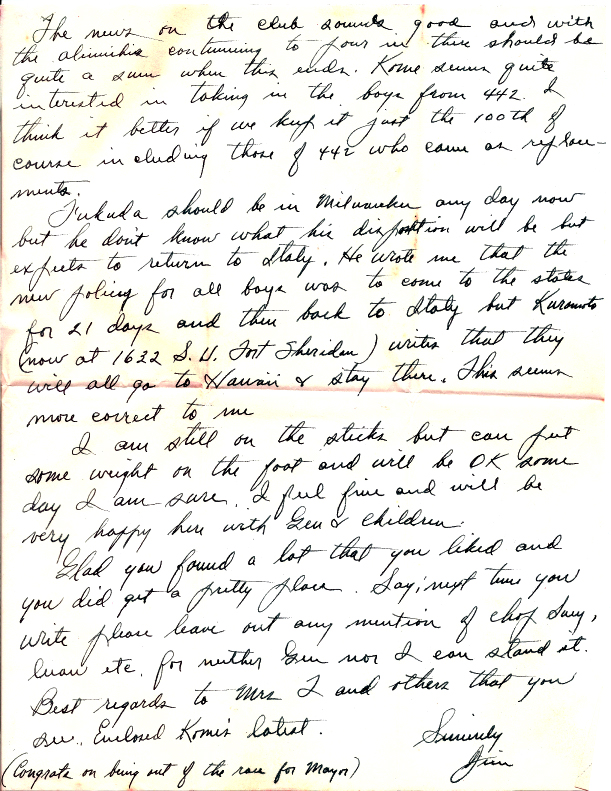 The news on the club sounds good and with
the alimihis continuing to pour in there should be
quite a sum when this ends. Kome seems quite
interested in taking in the boys from 442. I
think it better if we keep it just the 100th of
course including those of 442 who came as replace-
ments.
Fukuda should be in Milwaukee any day now
but he don't know what his disposition will be but
expects to return to Italy. He wrote me that the
new policy for all boys was to come to the states
for 21 days and then back to Italy but Kuramoto
(now at 1622 S.U. Fort Sheridan) writes that they
will all go to Hawaii & stay there. This seems
more correct to me
I am still on the sticks but can put
some weight on the foot and will be OK some
day I am sure. I feel fine and will be
very happy here with Gen & children.
Glad you found a lot that you liked and
you did get a pretty place. Say, next time you
write please leave out any mention of chop suey,
luau etc. for neither Gen nor I can stand it.
Best regards to Mrs T and others that you
see. Enclosed Kome's latest.
Sincerely
Jim
(Congrats on being out of the race for Mayor)